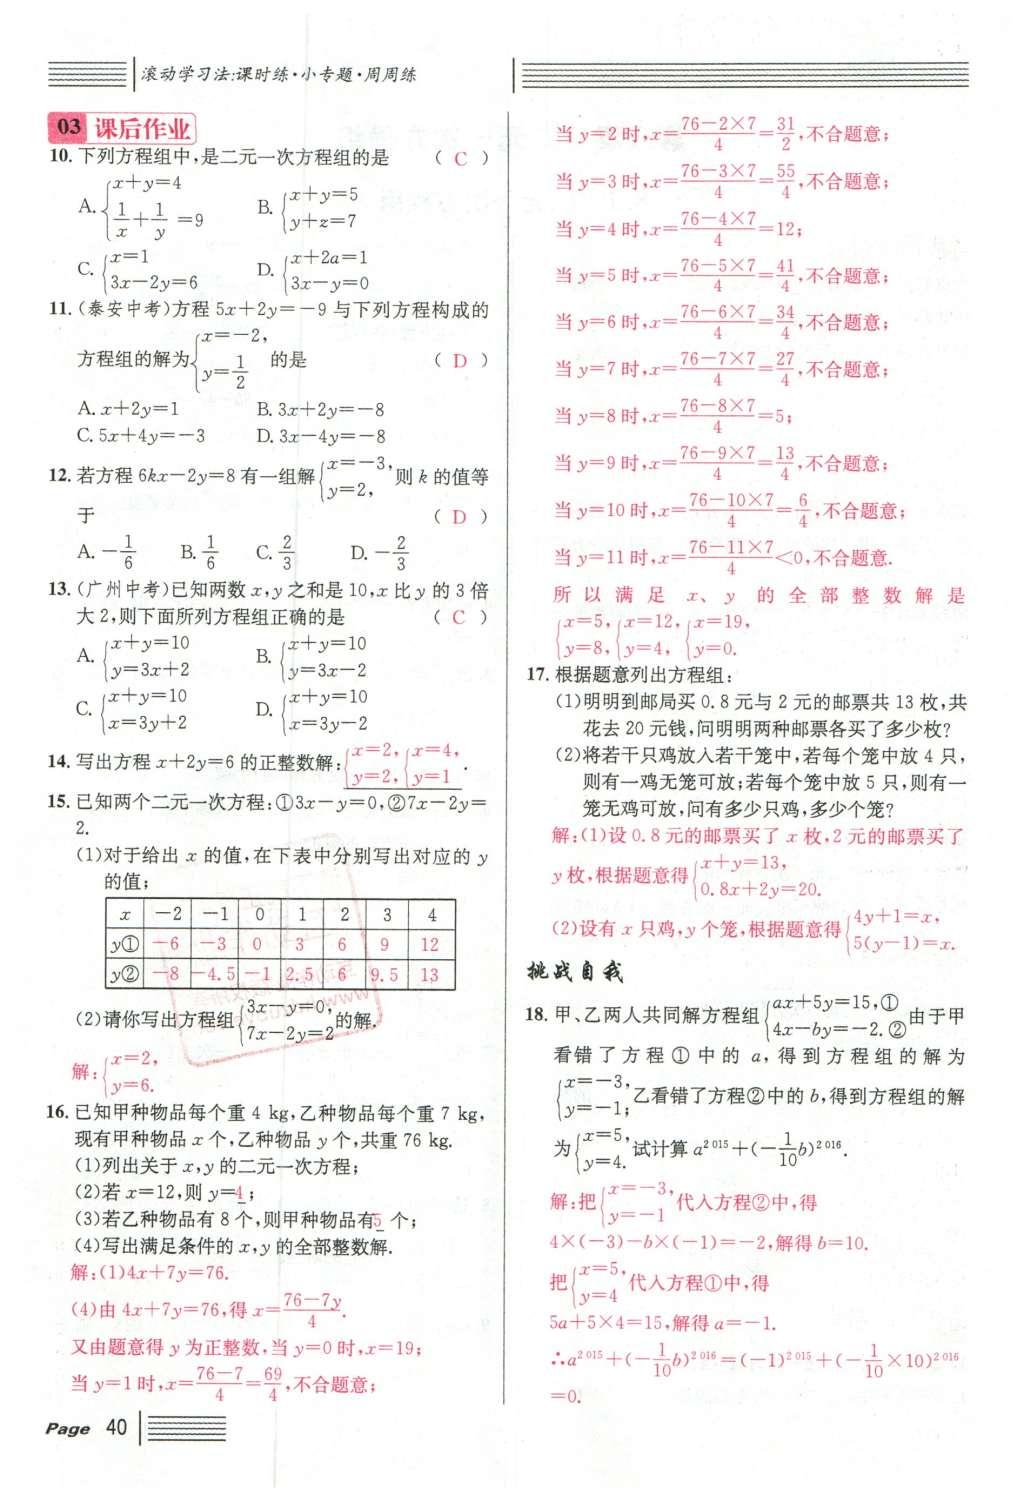 滚动学习法:课时练·小专题·周周练
03 课后作业
10. 下列方程组中,是二元一次方程组的是 ( C )
A. {x+y=4, 1/x+1/y=9 B. {x+y=5, y+z=7
C. {x=1, 3x-2y=6 D. {x+2a=1, 3x-y=0
11. (泰安中考)方程 5x+2y=-9 与下列方程构成的
方程组的解为{x=-2, y=1/2 的是 ( D )
A. x+2y=1 B. 3x+2y=-8
C. 5x+4y=-3 D. 3x-4y=-8
12. 若方程 6kx-2y=8 有一组解{x=-3, y=2, 则 k 的值等
于 ( D )
A. -1/6 B. 1/6 C. 2/3 D. -2/3
13. (广州中考)已知两数 x,y 之和是 10,x 比 y 的 3 倍
大 2,则下面所列方程组正确的是 ( C )
A. {x+y=10, y=3x+2 B. {x+y=10, y=3x-2
C. {x+y=10, x=3y+2 D. {x+y=10, x=3y-2
14. 写出方程 x+2y=6 的正整数解:{x=2, y=2, {x=4, y=1.
15. 已知两个二元一次方程:①3x-y=0,②7x-2y=
2.
(1)对于给出 x 的值,在下表中分别写出对应的 y
的值;
x -2 -1 0 1 2 3 4
y① -6 -3 0 3 6 9 12
y② -8 -4.5 -1 2.5 6 9.5 13
(2)请你写出方程组{3x-y=0, 7x-2y=2 的解.
解:{x=2, y=6.
16. 已知甲种物品每个重 4 kg,乙种物品每个重 7 kg,
现有甲种物品 x 个,乙种物品 y 个,共重 76 kg.
(1)列出关于 x,y 的二元一次方程;
(2)若 x=12,则 y=4;
(3)若乙种物品有 8 个,则甲种物品有5 个;
(4)写出满足条件的 x,y 的全部整数解.
解:(1)4x+7y=76.
(4)由 4x+7y=76,得 x=(76-7y)/4.
又由题意得 y 为正整数,当 y=0 时,x=19;
当 y=1 时,x=(76-7)/4=69/4,不合题意;
当 y=2 时,x=(76-2×7)/4=31/2,不合题意;
当 y=3 时,x=(76-3×7)/4=55/4,不合题意;
当 y=4 时,x=(76-4×7)/4=12;
当 y=5 时,x=(76-5×7)/4=41/4,不合题意;
当 y=6 时,x=(76-6×7)/4=34/4,不合题意;
当 y=7 时,x=(76-7×7)/4=27/4,不合题意;
当 y=8 时,x=(76-8×7)/4=5;
当 y=9 时,x=(76-9×7)/4=13/4,不合题意;
当 y=10 时,x=(76-10×7)/4=6/4,不合题意;
当 y=11 时,x=(76-11×7)/4<0,不合题意.
所以满足 x、y 的全部整数解是
{x=5, y=8, {x=12, y=4, {x=19, y=0.
17. 根据题意列出方程组:
(1)明明到邮局买 0.8 元与 2 元的邮票共 13 枚,共
花去 20 元钱,问明明两种邮票各买了多少枚?
(2)将若干只鸡放入若干笼中,若每个笼中放 4 只,
则有一鸡无笼可放;若每个笼中放 5 只,则有一
笼无鸡可放,问有多少只鸡,多少个笼?
解:(1)设 0.8 元的邮票买了 x 枚,2 元的邮票买了
y 枚,根据题意得{x+y=13, 0.8x+2y=20.
(2)设有 x 只鸡,y 个笼,根据题意得{4y+1=x, 5(y-1)=x.
挑战自我
18. 甲、乙两人共同解方程组{ax+5y=15,① 4x-by=-2.② 由于甲
看错了方程①中的 a,得到方程组的解为
{x=-3, y=-1; 乙看错了方程②中的 b,得到方程组的解
为{x=5, y=4. 试计算 a^2 015+(-1/10 b)^2 016.
解:把{x=-3, y=-1 代入方程②中,得
4×(-3)-b×(-1)=-2,解得 b=10.
把{x=5, y=4 代入方程①中,得
5a+5×4=15,解得 a=-1.
∴a^2 015+(-1/10 b)^2 016=(-1)^2 015+(-1/10×10)^2 016
=0.
Page 40